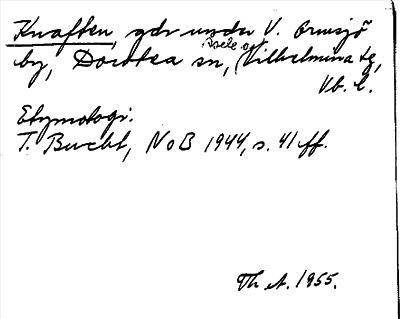 Knaften, gdr under V. Ormsjö
by, Dorotea sn, Åsele o. Vilhelmina tg,
Vb. l.
Etymologi.
T. Bucht, NoB 1944, s. 41 ff.
Th A. 1955.